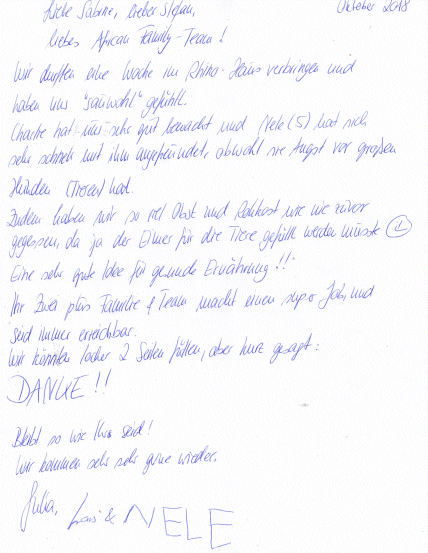 Oktober 2018
Liebe Sabine, lieber Stefan,
liebes African Family-Team!
Wir durften eine Woche im Rhino-Haus verbringen und
haben uns "sauwohl" gefühlt.
Charlie hat uns sehr gut bewacht und Nele (5) hat sich
sehr schnell mit ihm angefreundet, obwohl sie Angst vor großen
Hunden (Tieren) hat.
Zudem haben wir so viel Obst und Rohkost wie nie zuvor
gegessen, da ja der Eimer für die Tiere gefüllt werden musste
Eine sehr gute Idee für gesunde Ernährung!!
Ihr Zwei plus Familie & Team macht einen super Job, und
seid immer erreichbar.
Wir könnten locker 2 Seiten füllen, aber kurz gesagt:
DANKE!!
Bleibt so wie Ihr seid!
Wir kommen sehr sehr gerne wieder.
Julia, & NELE